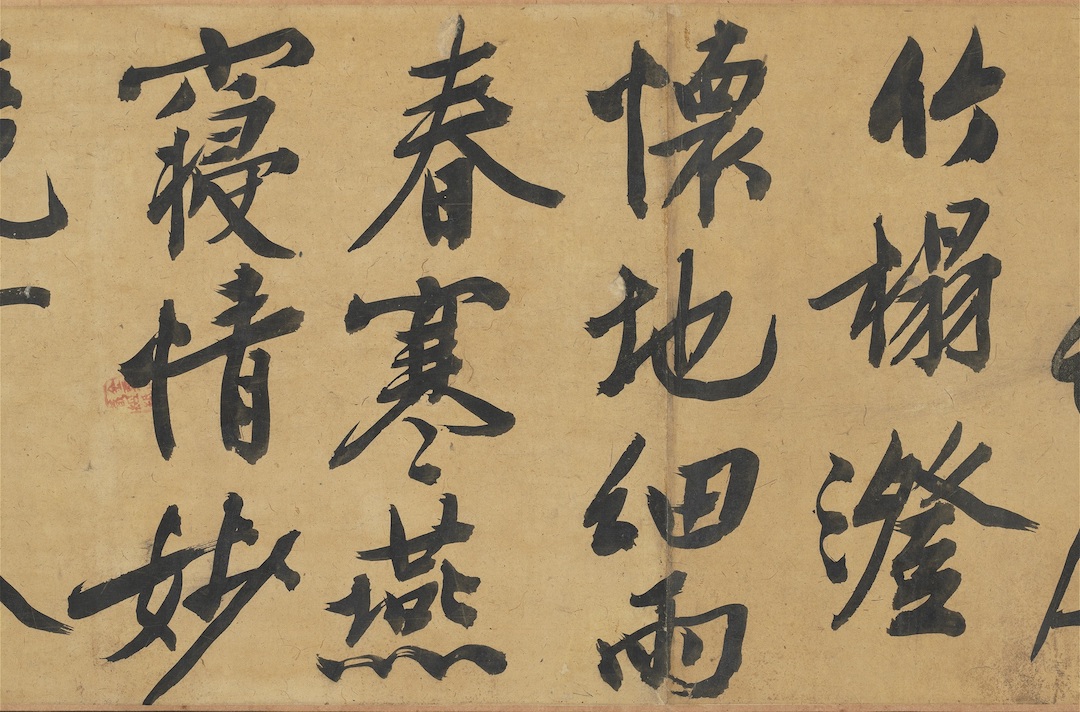 竹榻澄
懷地細雨
春寒燕
寢情妙